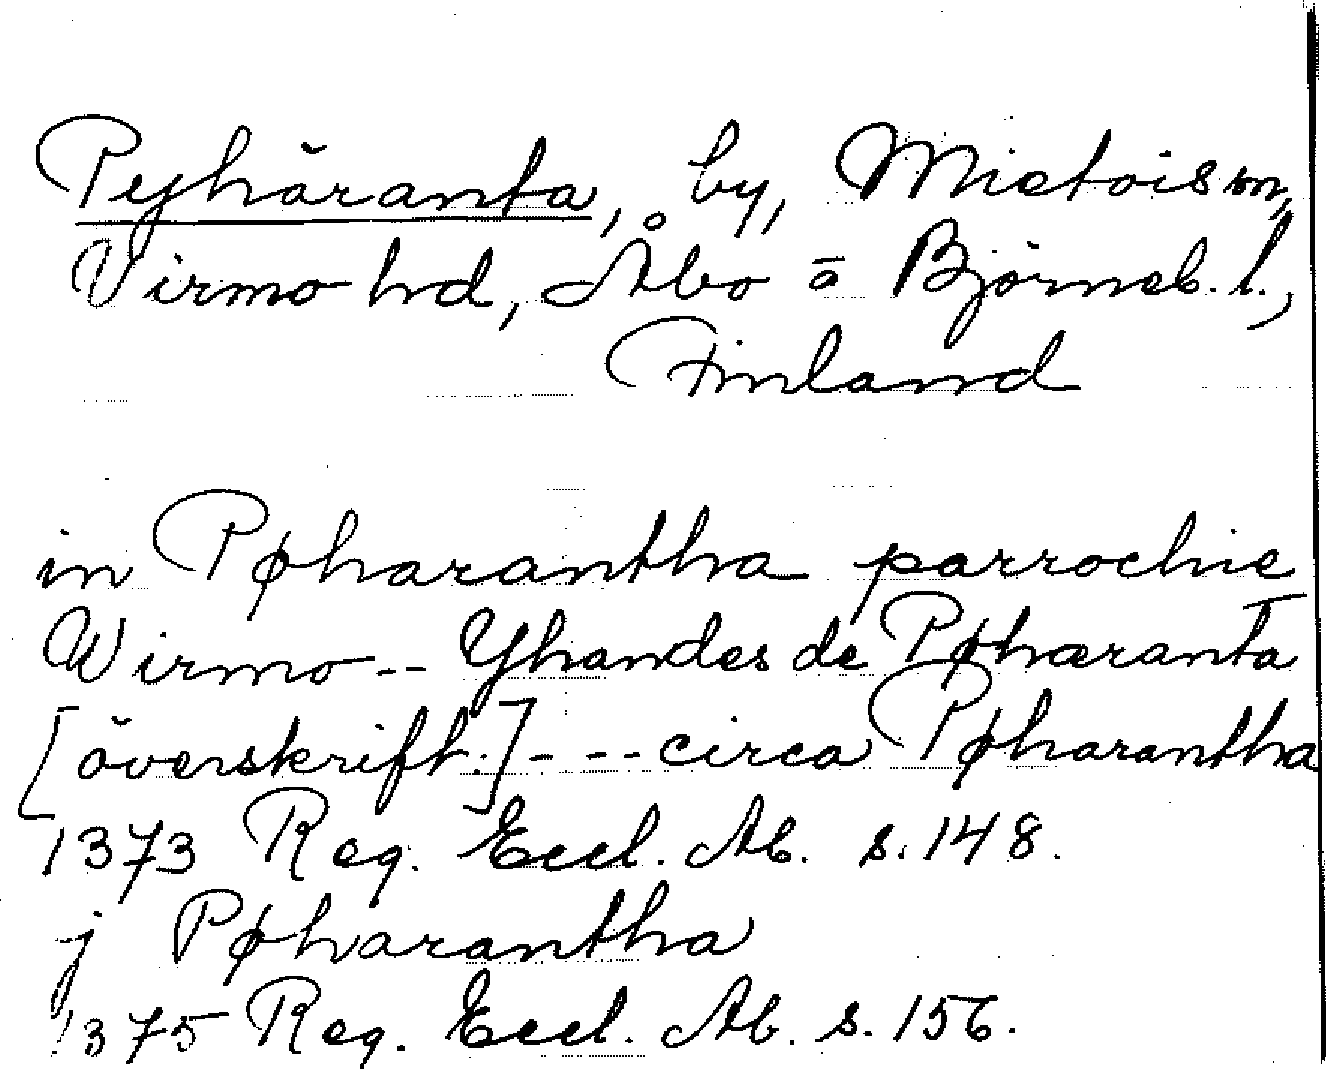 Pyhäranta, by, Mietois sn,
Virmo hd, Åbo o Björneb. l.,
Finland
in Pøharantha parrochie
Wirmo -- Yhandes de Pøhæranta
[överskrift.] - -- circa Pøharantha
1373 Reg. Eccl. Ab. s. 148.
j Pøharantha
1375 Reg. Eccl. Ab. s. 156.